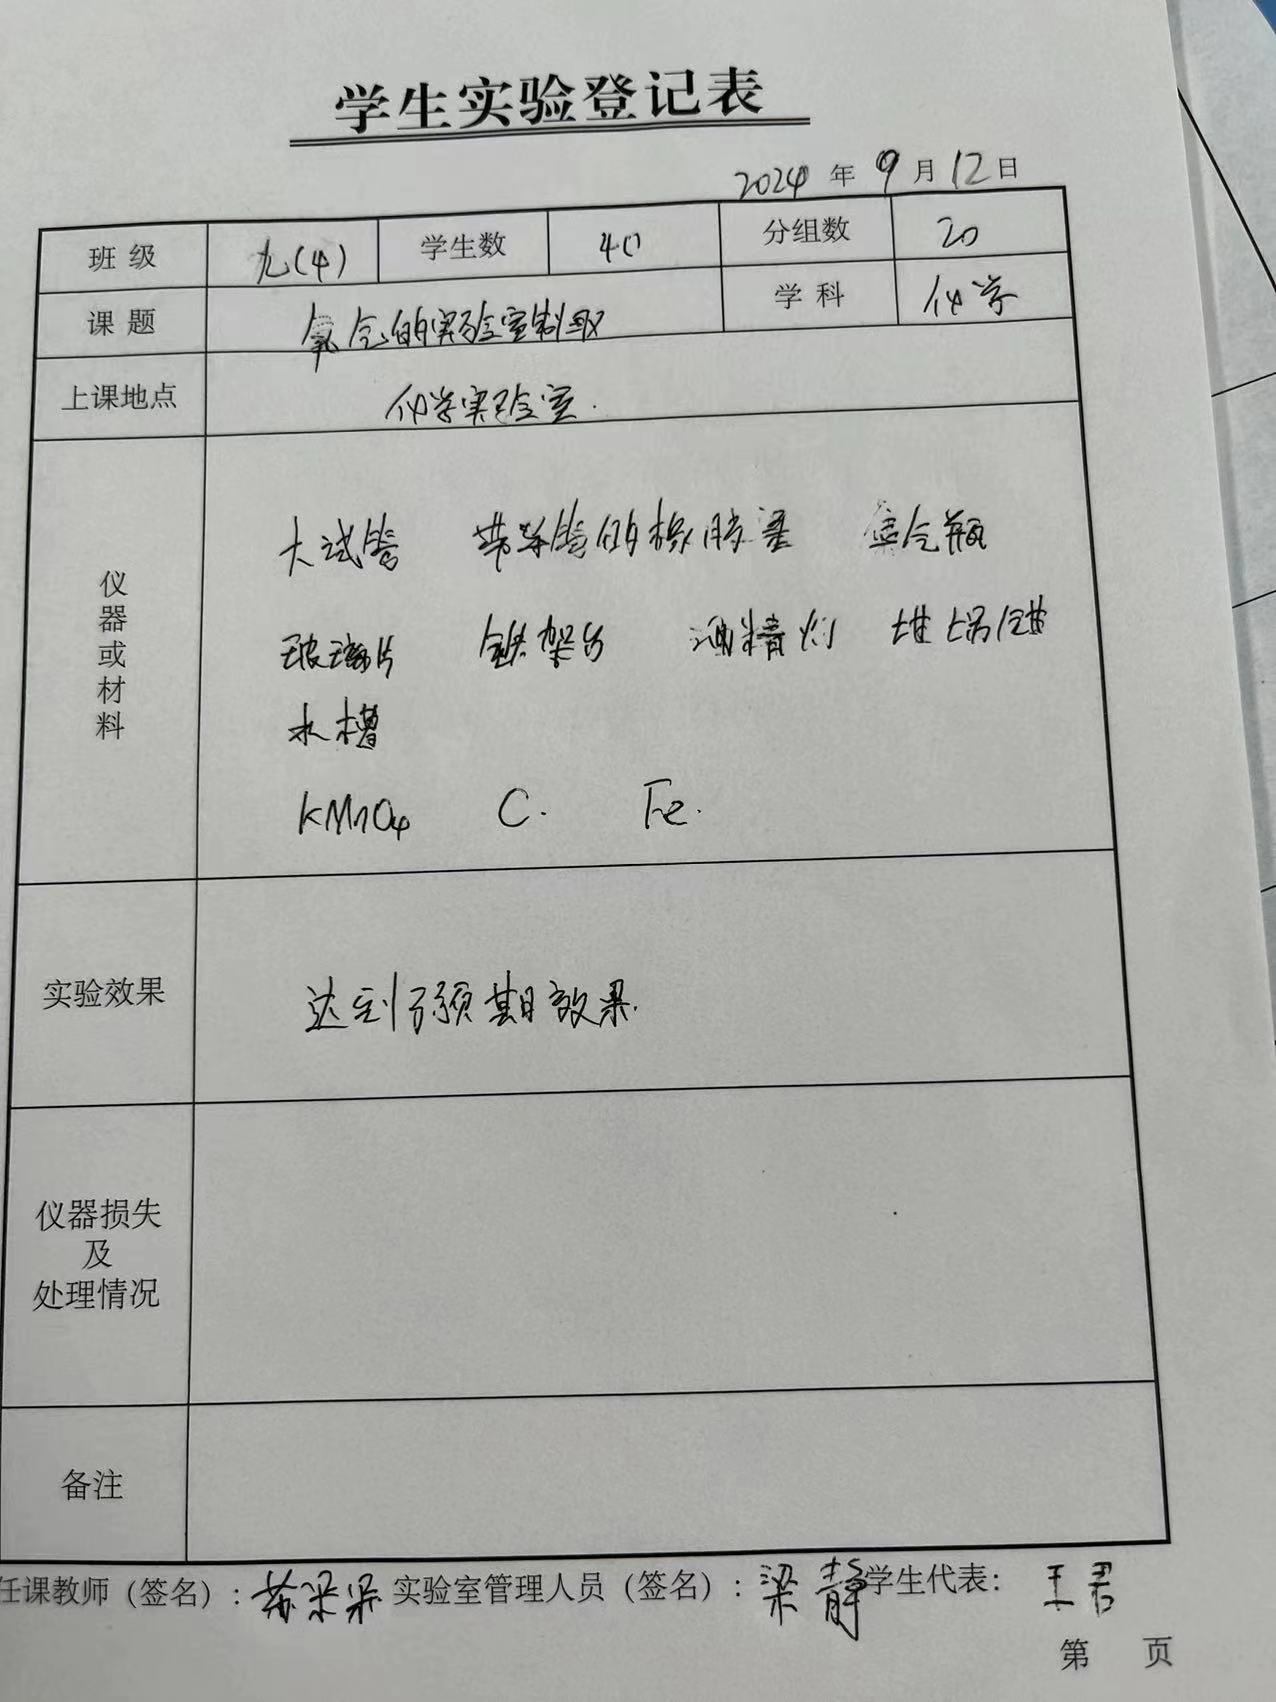 学生实验登记表
2024 年 9 月 12 日
班级 九(4) 学生数 40 分组数 20
课题 氧气的实验室制取 学科 化学
上课地点 化学实验室.
仪器或材料
大试管 带导管的橡胶塞 集气瓶
玻璃片 铁架台 酒精灯 坩埚钳
水槽
KMnO4 C. Fe.
实验效果 达到预期效果.
仪器损失
及
处理情况
备注
任课教师（签名）: 实验室管理人员（签名）: 梁静 学生代表: 王君
第 页